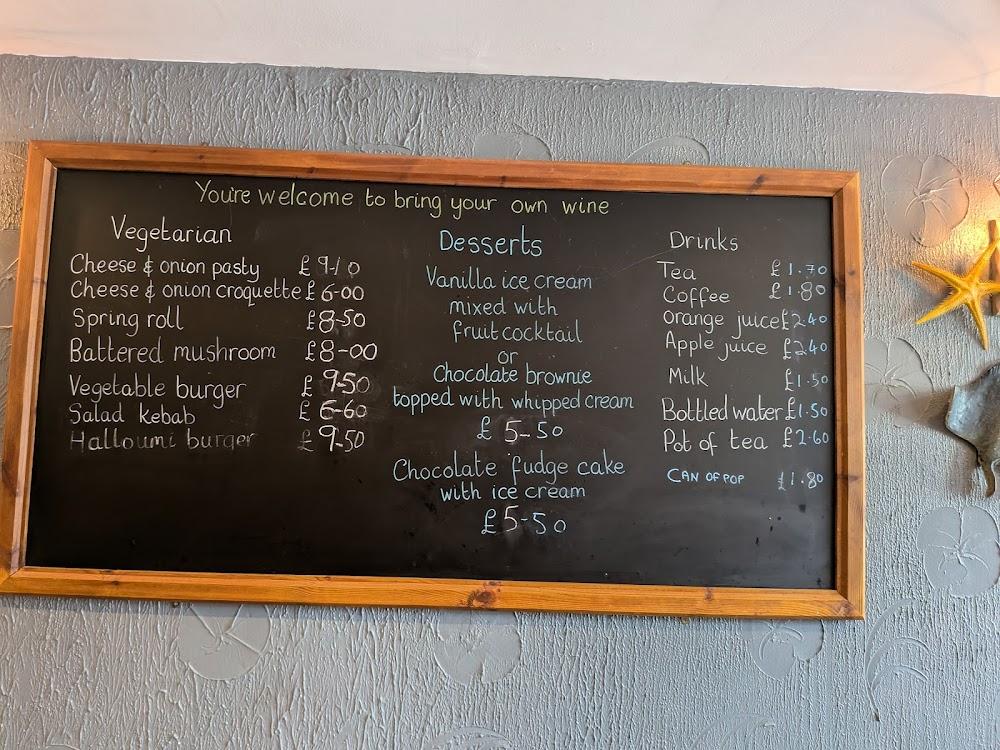 You're welcome to bring your own wine
Vegetarian
Cheese & onion pasty £9-10
Cheese & onion croquette £6-00
Spring roll £8-50
Battered mushroom £8-00
Vegetable burger £9-50
Salad kebab £6-60
Halloumi burger £9-50
Desserts
Vanilla ice cream
mixed with
fruit cocktail
or
Chocolate brownie
topped with whipped cream
£5-50
Chocolate fudge cake
with ice cream
£5-50
Drinks
Tea £1.70
Coffee £1.80
Orange juice £2.40
Apple juice £2.40
Milk £1.50
Bottled water £1.50
Pot of tea £2.60
CAN OF POP £1.80